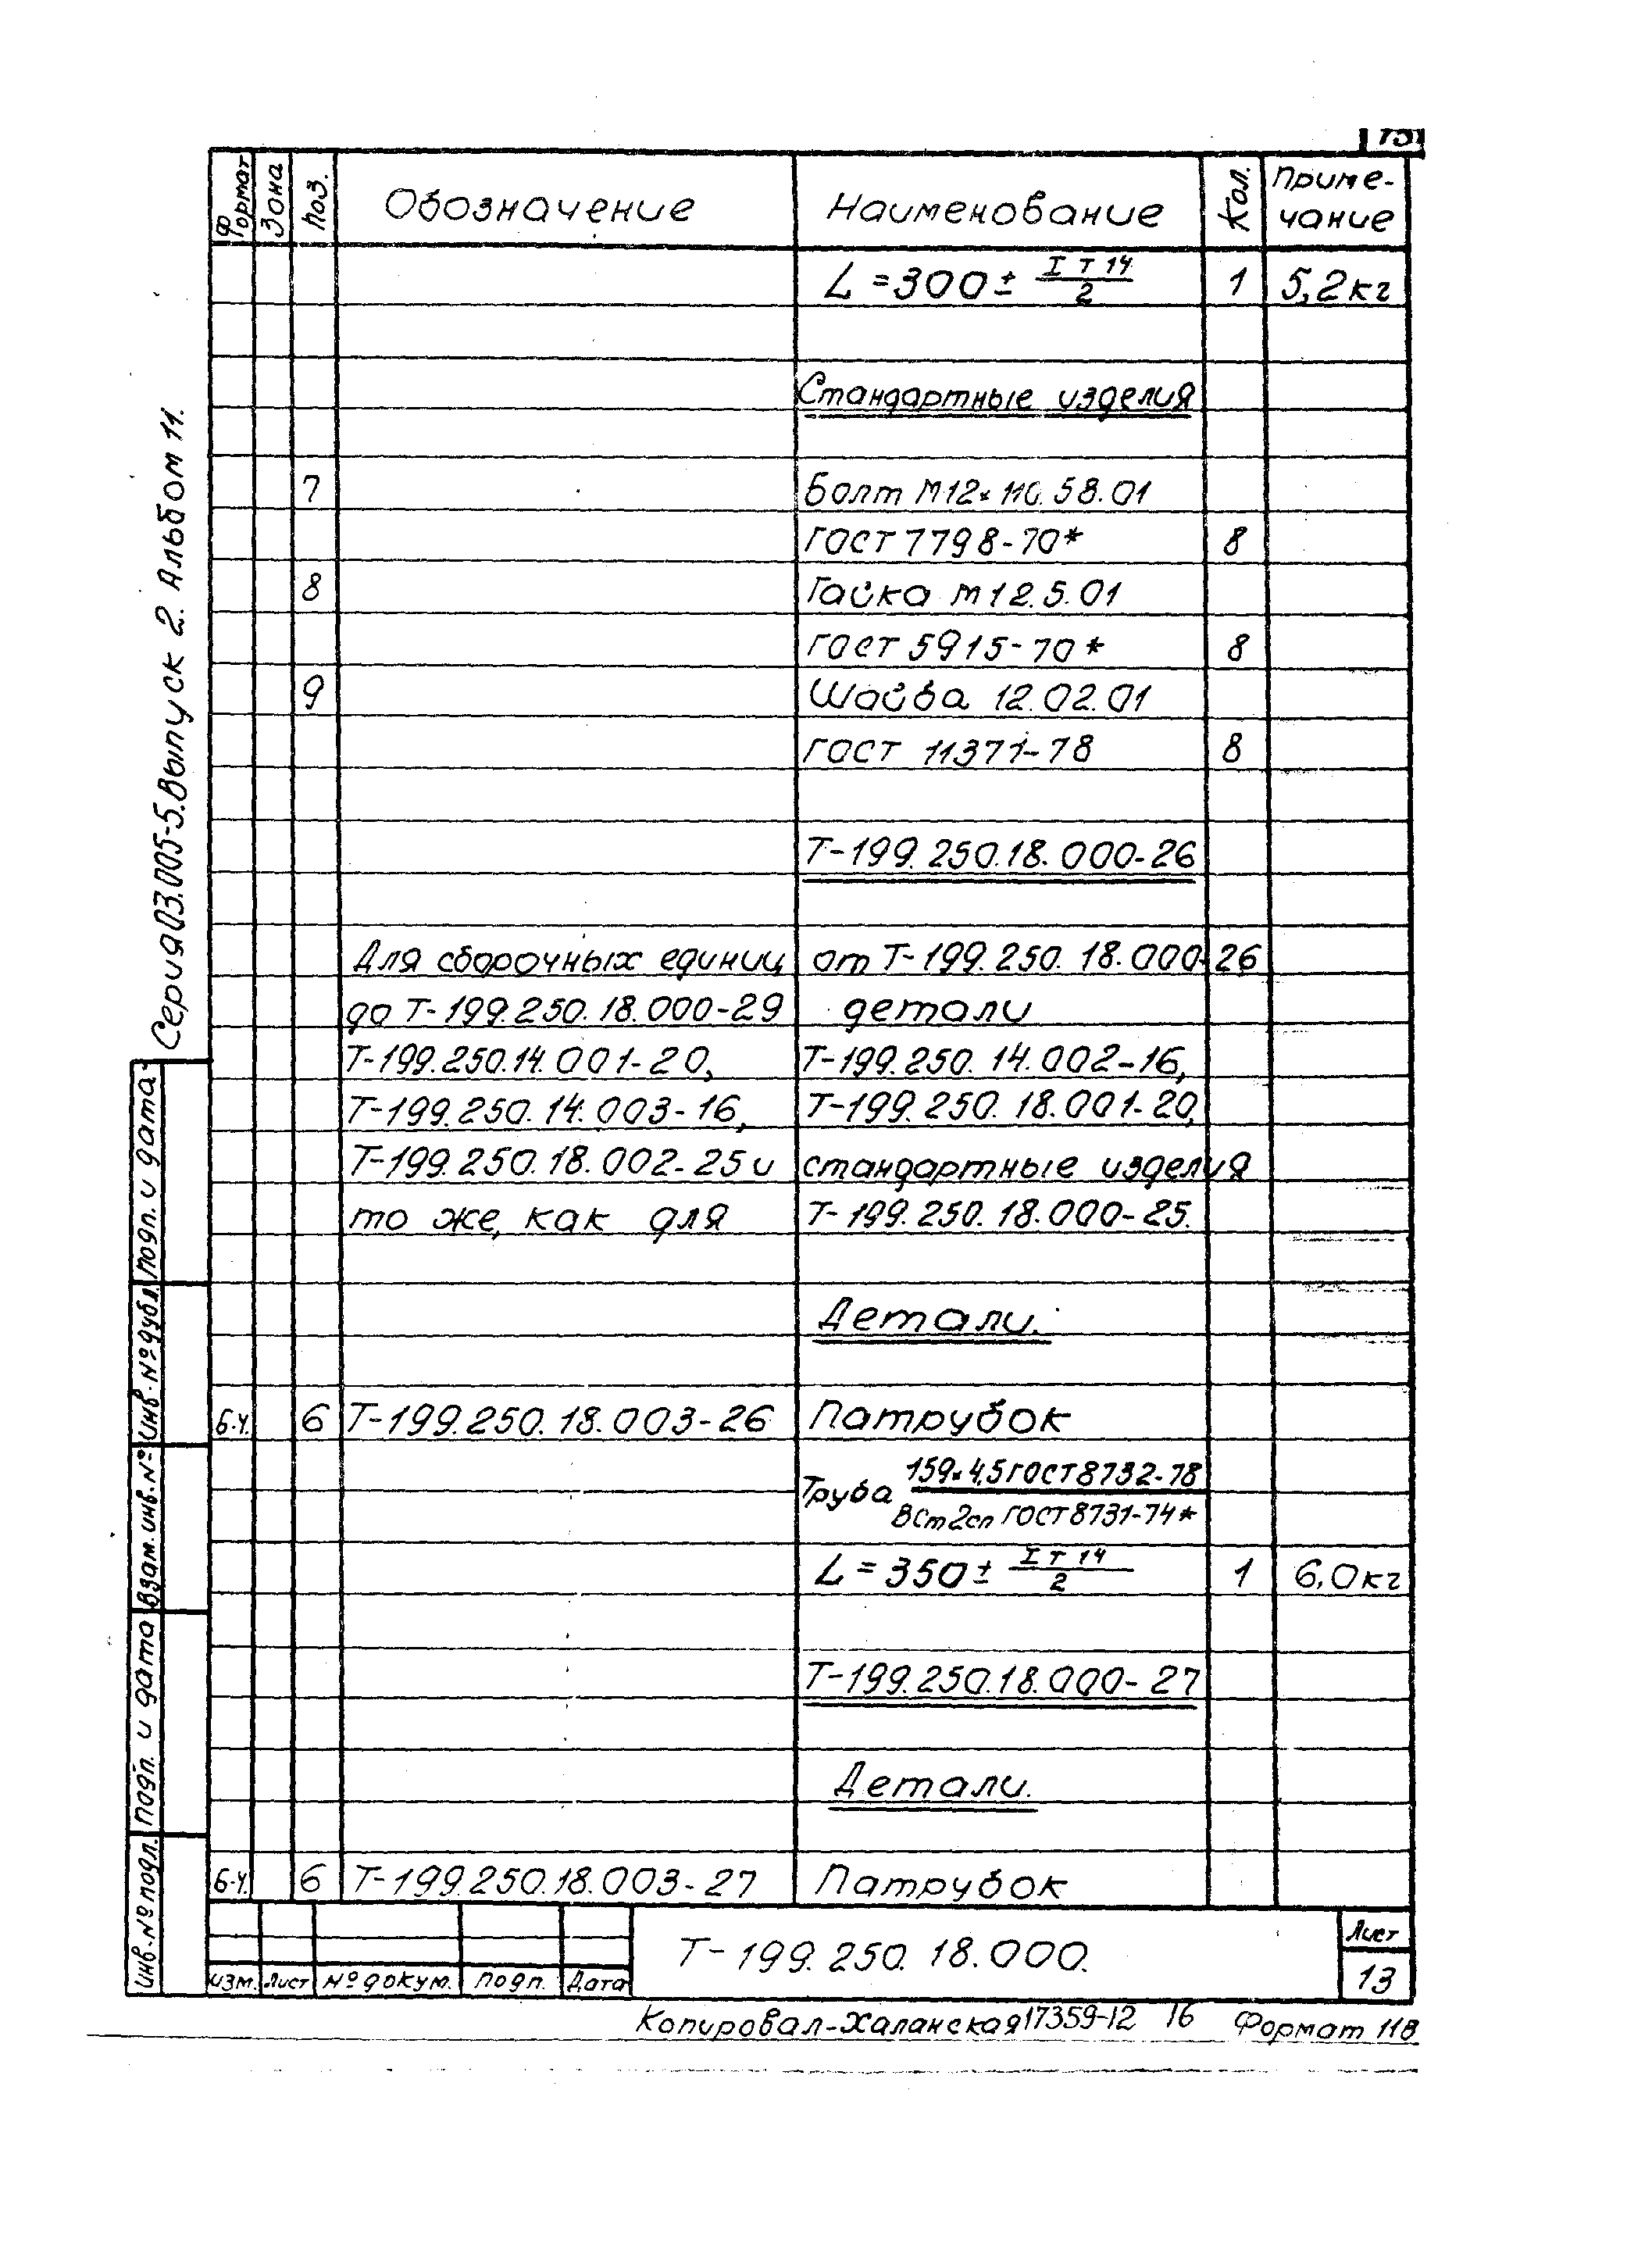 Формат Зона Поз. Обозначение Наименование Кол. Приме-
чание
L = 300 ± IT14/2 1 5,2кг
Стандартные изделия
7 Болт М12×110.58.01
ГОСТ 7798-70* 8
8 Гайка М12.5.01
ГОСТ 5915-70* 8
9 Шайба 12.02.01
ГОСТ 11371-78 8
Т-199.250.18.000-26
Для сборочных единиц от Т-199.250.18.000-26
до Т-199.250.18.000-29 детали
Т-199.250.14.001-20, Т-199.250.14.002-16,
Т-199.250.14.003-16, Т-199.250.18.001-20,
Т-199.250.18.002-25 и стандартные изделия
то же, как для Т-199.250.18.000-25.
Детали.
Б.Ч. 6 Т-199.250.18.003-26 Патрубок
Труба 159×4,5 ГОСТ 8732-78
ВСт2сп ГОСТ 8731-74*
L = 350 ± IT14/2 1 6,0кг
Т-199.250.18.000-27
Детали.
Б.Ч. 6 Т-199.250.18.003-27 Патрубок
Т-199.250.18.000.
Лист
13
Изм. Лист № докум. Подп. Дата
Копировал-Халанская 17359-12 16 Формат 11В
Серия 03.005-5. Выпуск 2. Альбом 11.
Подп. и дата
Инв. № дубл.
Взам. инв. №
Подп. и дата
Инв. № подл.